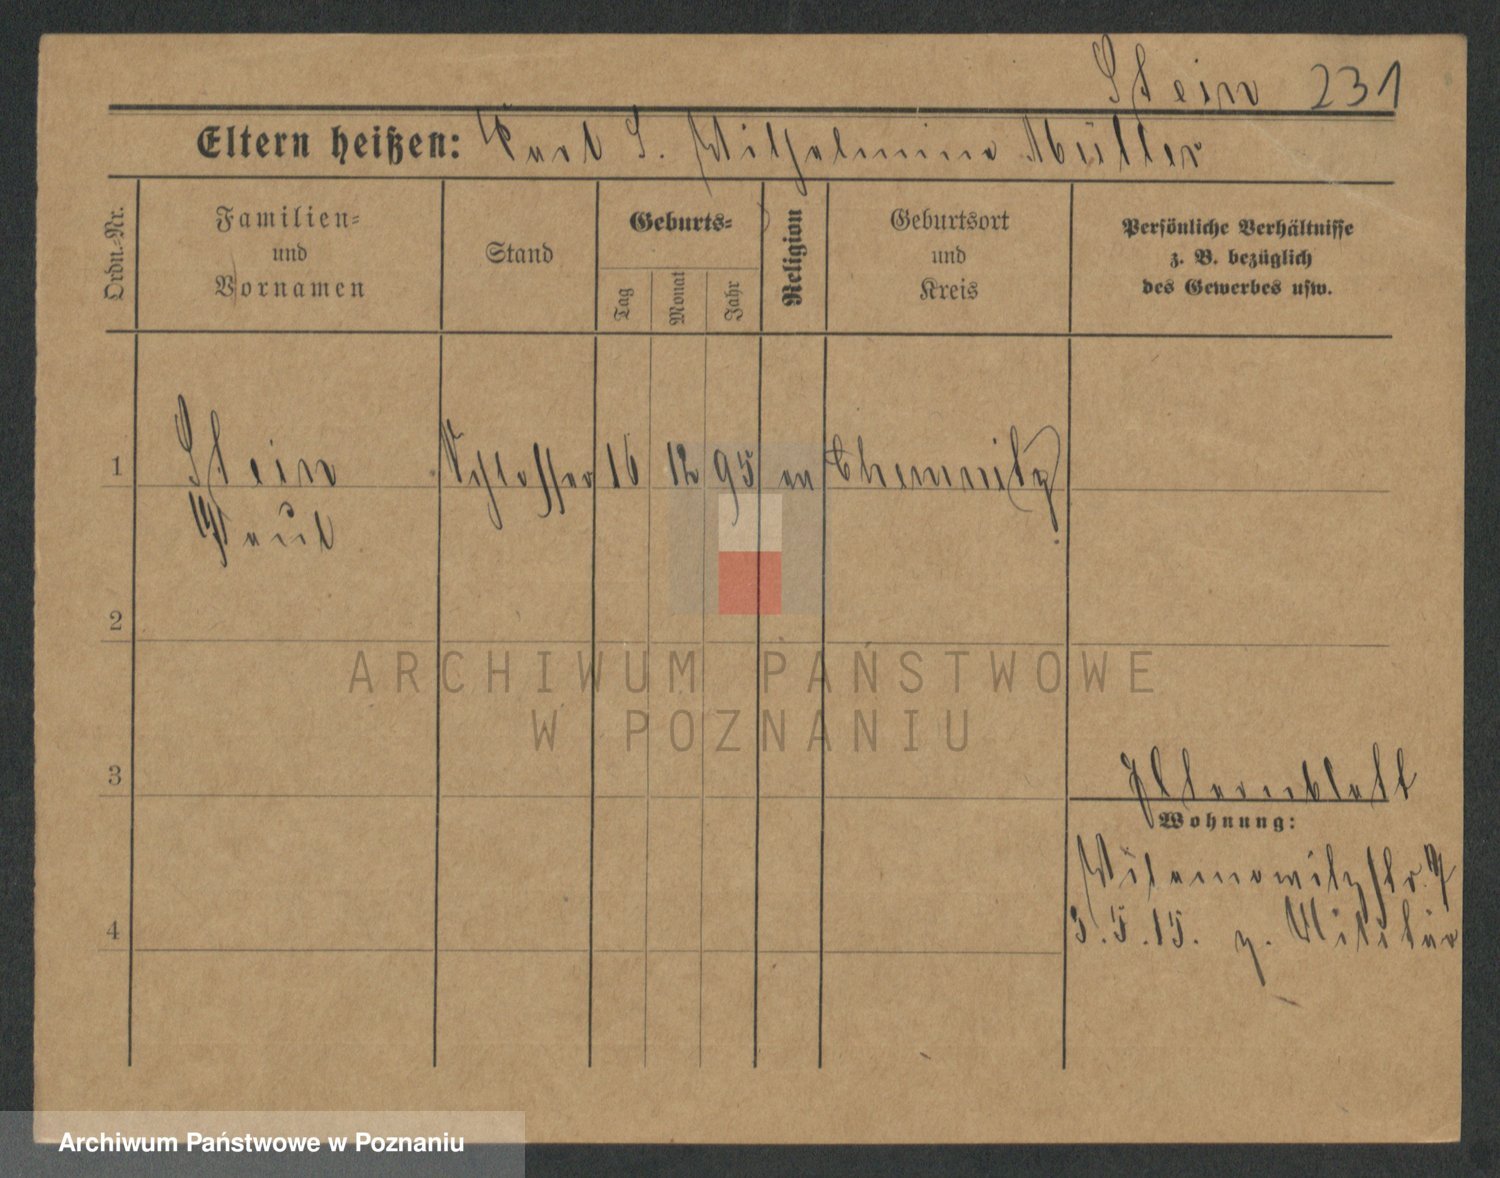 Stein 231
Eltern heißen: Karl S. Wilhelmine Müller
Ordn.-Nr.
Familien-
und
Vornamen
Stand
Geburts-
Tag
Monat
Jahr
Religion
Geburtsort
und
Kreis
Persönliche Verhältnisse
z. B. bezüglich
des Gewerbes usw.
1 Stein Schlosser 16 12 95 ev Chemnitz
Paul
2
ARCHIWUM PAŃSTWOWE
W POZNANIU
3
Elternblatt
Wohnung:
3.5.15. z. Militär
4
Archiwum Państwowe w Poznaniu